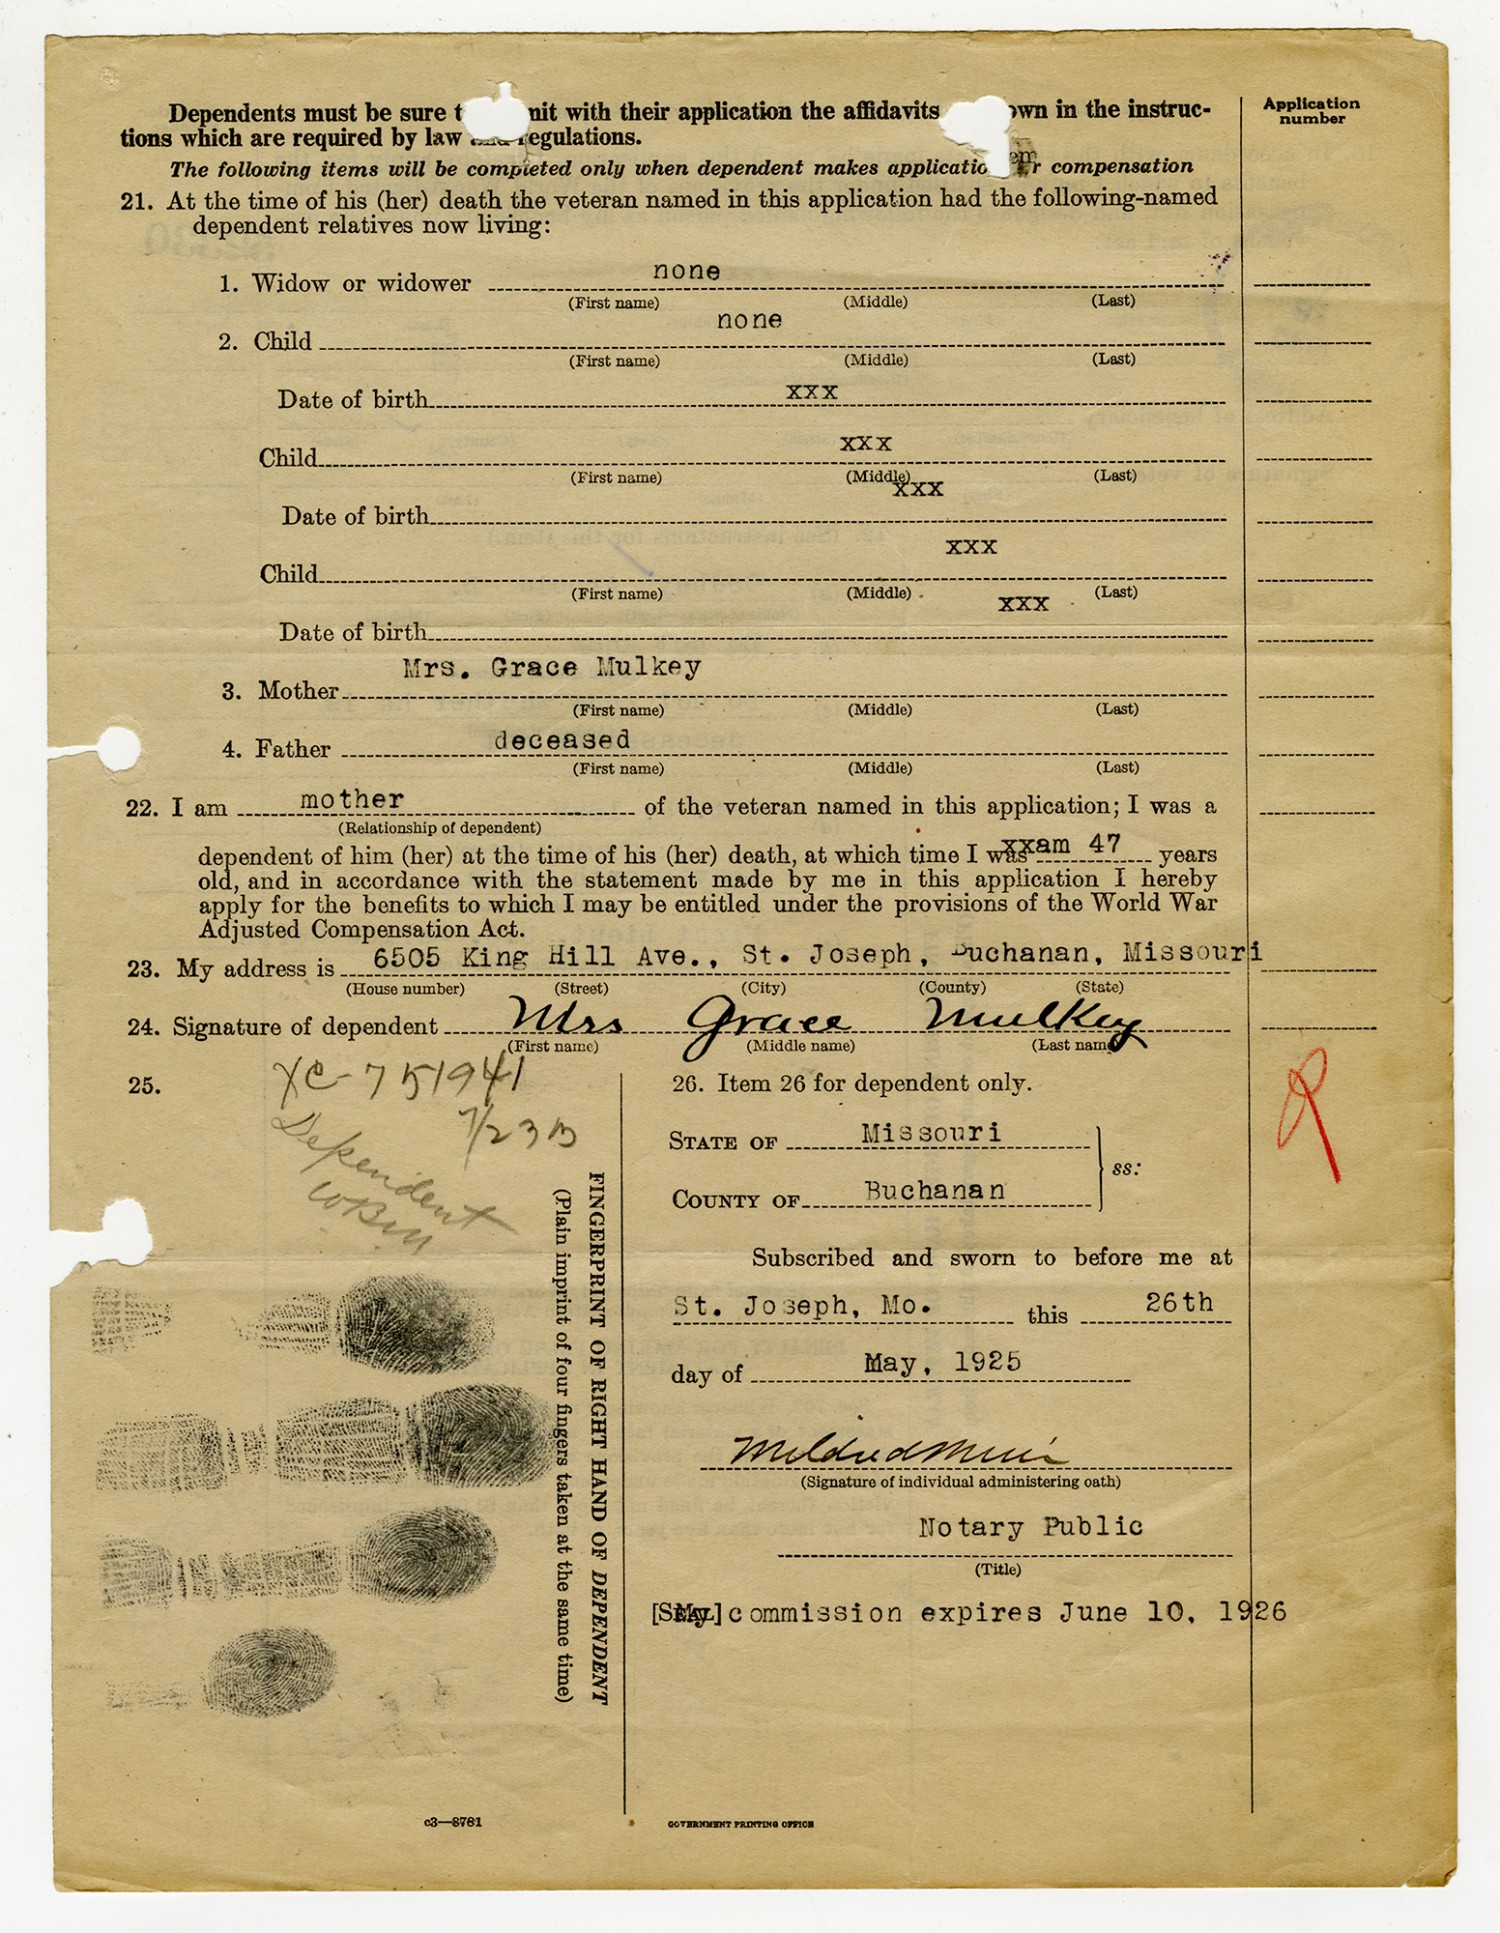 Dependents must be sure t nit with their application the affidavits own in the instruc-
tions which are required by law and regulations.
Application
number
The following items will be completed only when dependent makes applicatio r compensation
21. At the time of his (her) death the veteran named in this application had the following-named
dependent relatives now living:
1. Widow or widower none
(First name) (Middle) (Last)
2. Child none
(First name) (Middle) (Last)
Date of birth xxx
Child xxx
(First name) (Middle) (Last)
Date of birth xxx
Child xxx
(First name) (Middle) (Last)
Date of birth xxx
3. Mother Mrs. Grace Mulkey
(First name) (Middle) (Last)
4. Father deceased
(First name) (Middle) (Last)
22. I am mother of the veteran named in this application; I was a
(Relationship of dependent)
dependent of him (her) at the time of his (her) death, at which time I was xxam 47 years
old, and in accordance with the statement made by me in this application I hereby
apply for the benefits to which I may be entitled under the provisions of the World War
Adjusted Compensation Act.
23. My address is 6505 King Hill Ave., St. Joseph, Buchanan, Missouri
(House number) (Street) (City) (County) (State)
24. Signature of dependent Mrs Grace Mulkey
(First name) (Middle name) (Last name)
25.
XC-751941
7/23
Dependent
FINGERPRINT OF RIGHT HAND OF DEPENDENT
(Plain imprint of four fingers taken at the same time)
26. Item 26 for dependent only.
STATE OF Missouri
ss:
COUNTY OF Buchanan
Subscribed and sworn to before me at
St. Joseph, Mo. this 26th
day of May, 1925
Mildred Muir
(Signature of individual administering oath)
Notary Public
(Title)
[SEAL] My commission expires June 10, 1926
c3—8781
GOVERNMENT PRINTING OFFICE